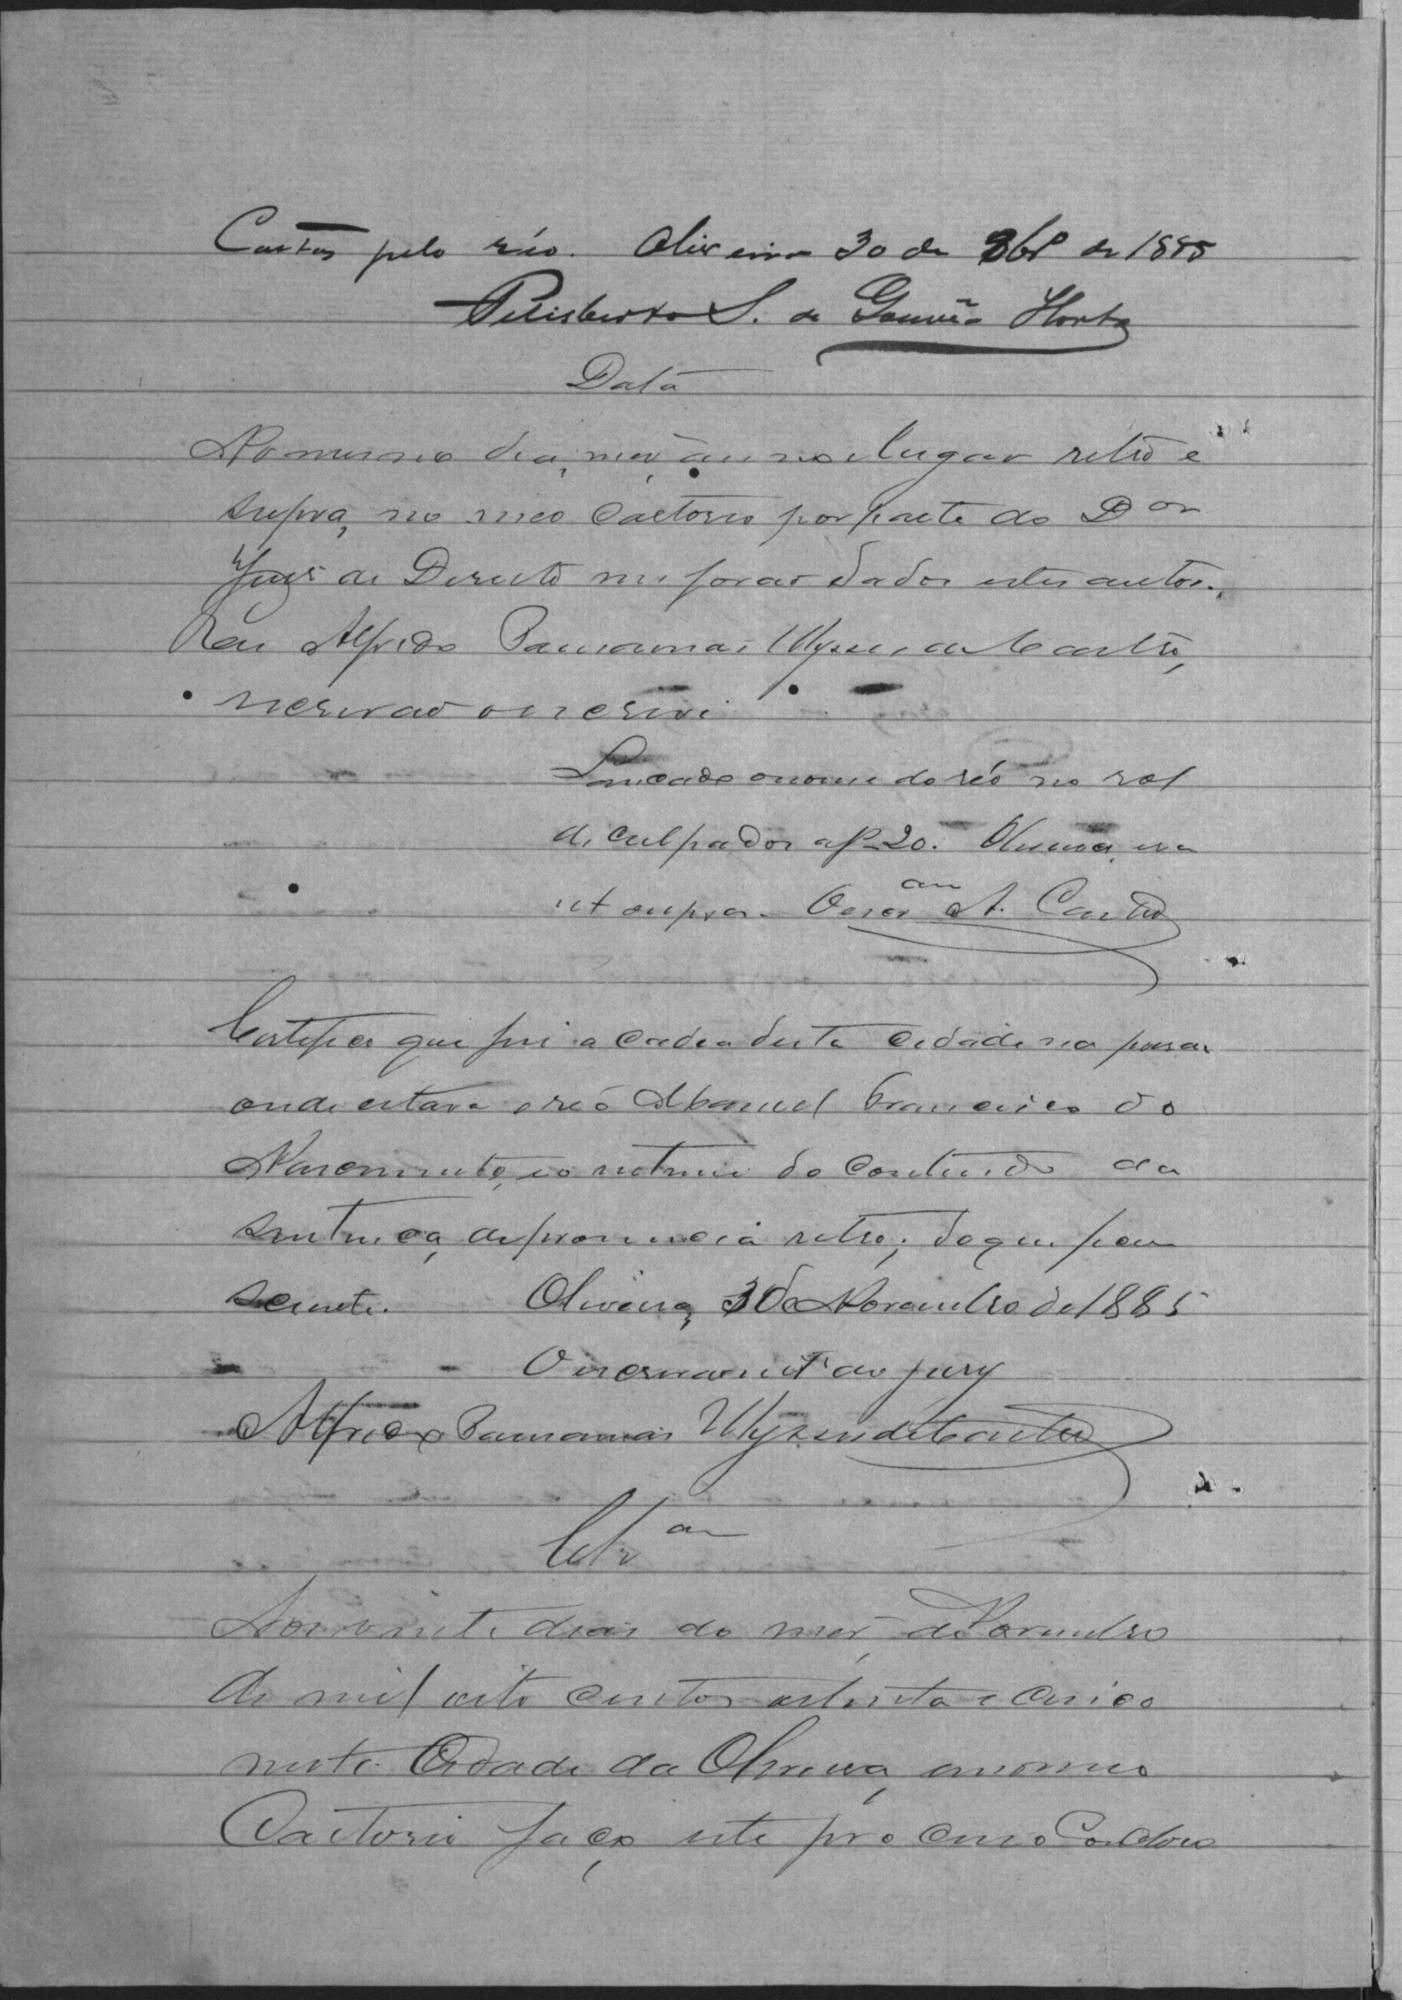 Custas pelo réo. Oliveira 30 de 8br̃o de 1885
Felisberto S. de Gouvêa Horta
Data
No mesmo dia, mez, anno e lugar retrò e
supra, no meo Cartorio por parte do Dor
Juiz de Direito me forao dados estes autos.
Eu Alfredo Paranaas Ulysses de Castro,
escrivao o escrevi
Lancado o nome do réo no rol
de culpados a fl 20. Oliveira, era
ut supra. O escr am A. Castro
Certifico que fui a Cadea desta Cidade na prisao
onde estava o réo Manoel Francisco do
Nascimento, e o intimei do conteudo da
sentença de pronuncia retro; do que ficou
sciente. Oliveira, 30 de Novembro de 1885
O escrivao int. do jury
Alfredo Paranaas Ulysses de Castro
Clsam
Aos vinte dias do mez de Novembro
de mil oito centos oitenta e cinco
nesta Cidade da Oliveira, em o meo
Cartorio faço este processo Concluso